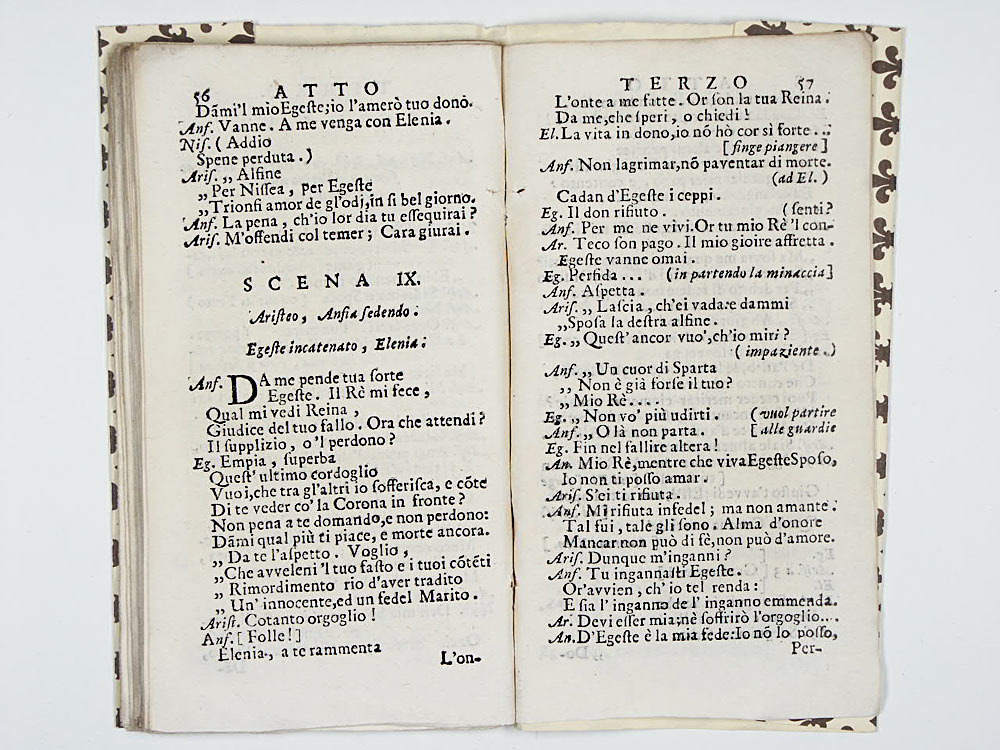 56 ATTO
Dām̄i'l mio Egeste; io l'amerò tuo donō.
Anf. Vanne. A me venga con Elenia.
Nis. (Addio
Spene perduta.)
Aris. „ Alfine
„ Per Nissea, per Egeste
„Trionfi amor de gl'odj, in sì bel giorno.
Anf. La pena, ch'io lor dia tu essequirai?
Aris. M'offendi col temer; Cara giurai.
SCENA IX.
Aristeo, Ansia sedendo.
Egeste incatenato, Elenia.
Anf. DA me pende tua sorte
Egeste. Il Rè mi fece,
Qual mi vedi Reina,
Giudice del tuo fallo. Ora che attendi?
Il supplizio, o'l perdono?
Eg. Empia, superba
Quest' ultimo cordoglio
Vuoi, che tra gl'altri io sofferisca, e cōte
Di te veder co' la Corona in fronte?
Non pena a te domando, e non perdono:
Dām̄i qual più ti piace, e morte ancora.
„ Da te l'aspetto. Voglio,
„Che avveleni 'l tuo fasto e i tuoi cōtēti
„ Rimordimento rio d'aver tradito
„ Un' innocente, ed un fedel Marito.
Arist. Cotanto orgoglio!
Anf. [Folle!]
Elenia, a te rammenta
L'on-
TERZO 57
L'onte a me fatte. Or son la tua Reina.
Da me, che speri, o chiedi!
El. La vita in dono, io nō hò cor sì forte...
[finge piangere]
Anf. Non lagrimar, nō paventar di morte.
(ad El.)
Cadan d'Egeste i ceppi.
Eg. Il don rifiuto. (senti?
Anf. Per me ne vivi. Or tu mio Rè 'l con-
Ar. Teco son pago. Il mio gioire affretta.
Egeste vanne omai.
Eg. Perfida... (in partendo la minaccia]
Anf. Aspetta.
Aris. „ Lascia, ch'ei vada: e dammi
„Sposa la destra alfine.
Eg. „ Quest' ancor vuo', ch'io miri?
(impaziente.)
Anf. „ Un cuor di Sparta
„ Non è già forse il tuo?
„ Mio Rè....
Eg. „ Non vo' più udirti. (vuol partire
Anf. „ O là non parta. [alle guardie
Eg. Fin nel fallire altera!
An. Mio Rè, mentre che viva Egeste Sposo,
Io non ti posso amar.
Aris. S'ei ti rifiuta.
Anf. Mi rifiuta infedel; ma non amante.
Tal fui, tale gli sono. Alma d'onore
Mancar non può di fè, non può d'amore.
Aris. Dunque m'inganni?
Anf. Tu ingannasti Egeste.
Or'avvien, ch'io tel renda:
E sia l'inganno de l'inganno emmenda.
Ar. Devi esser mia; nè soffrirò l'orgoglio...
An. D'Egeste è la mia fede: Io nō lo posso,
Per-